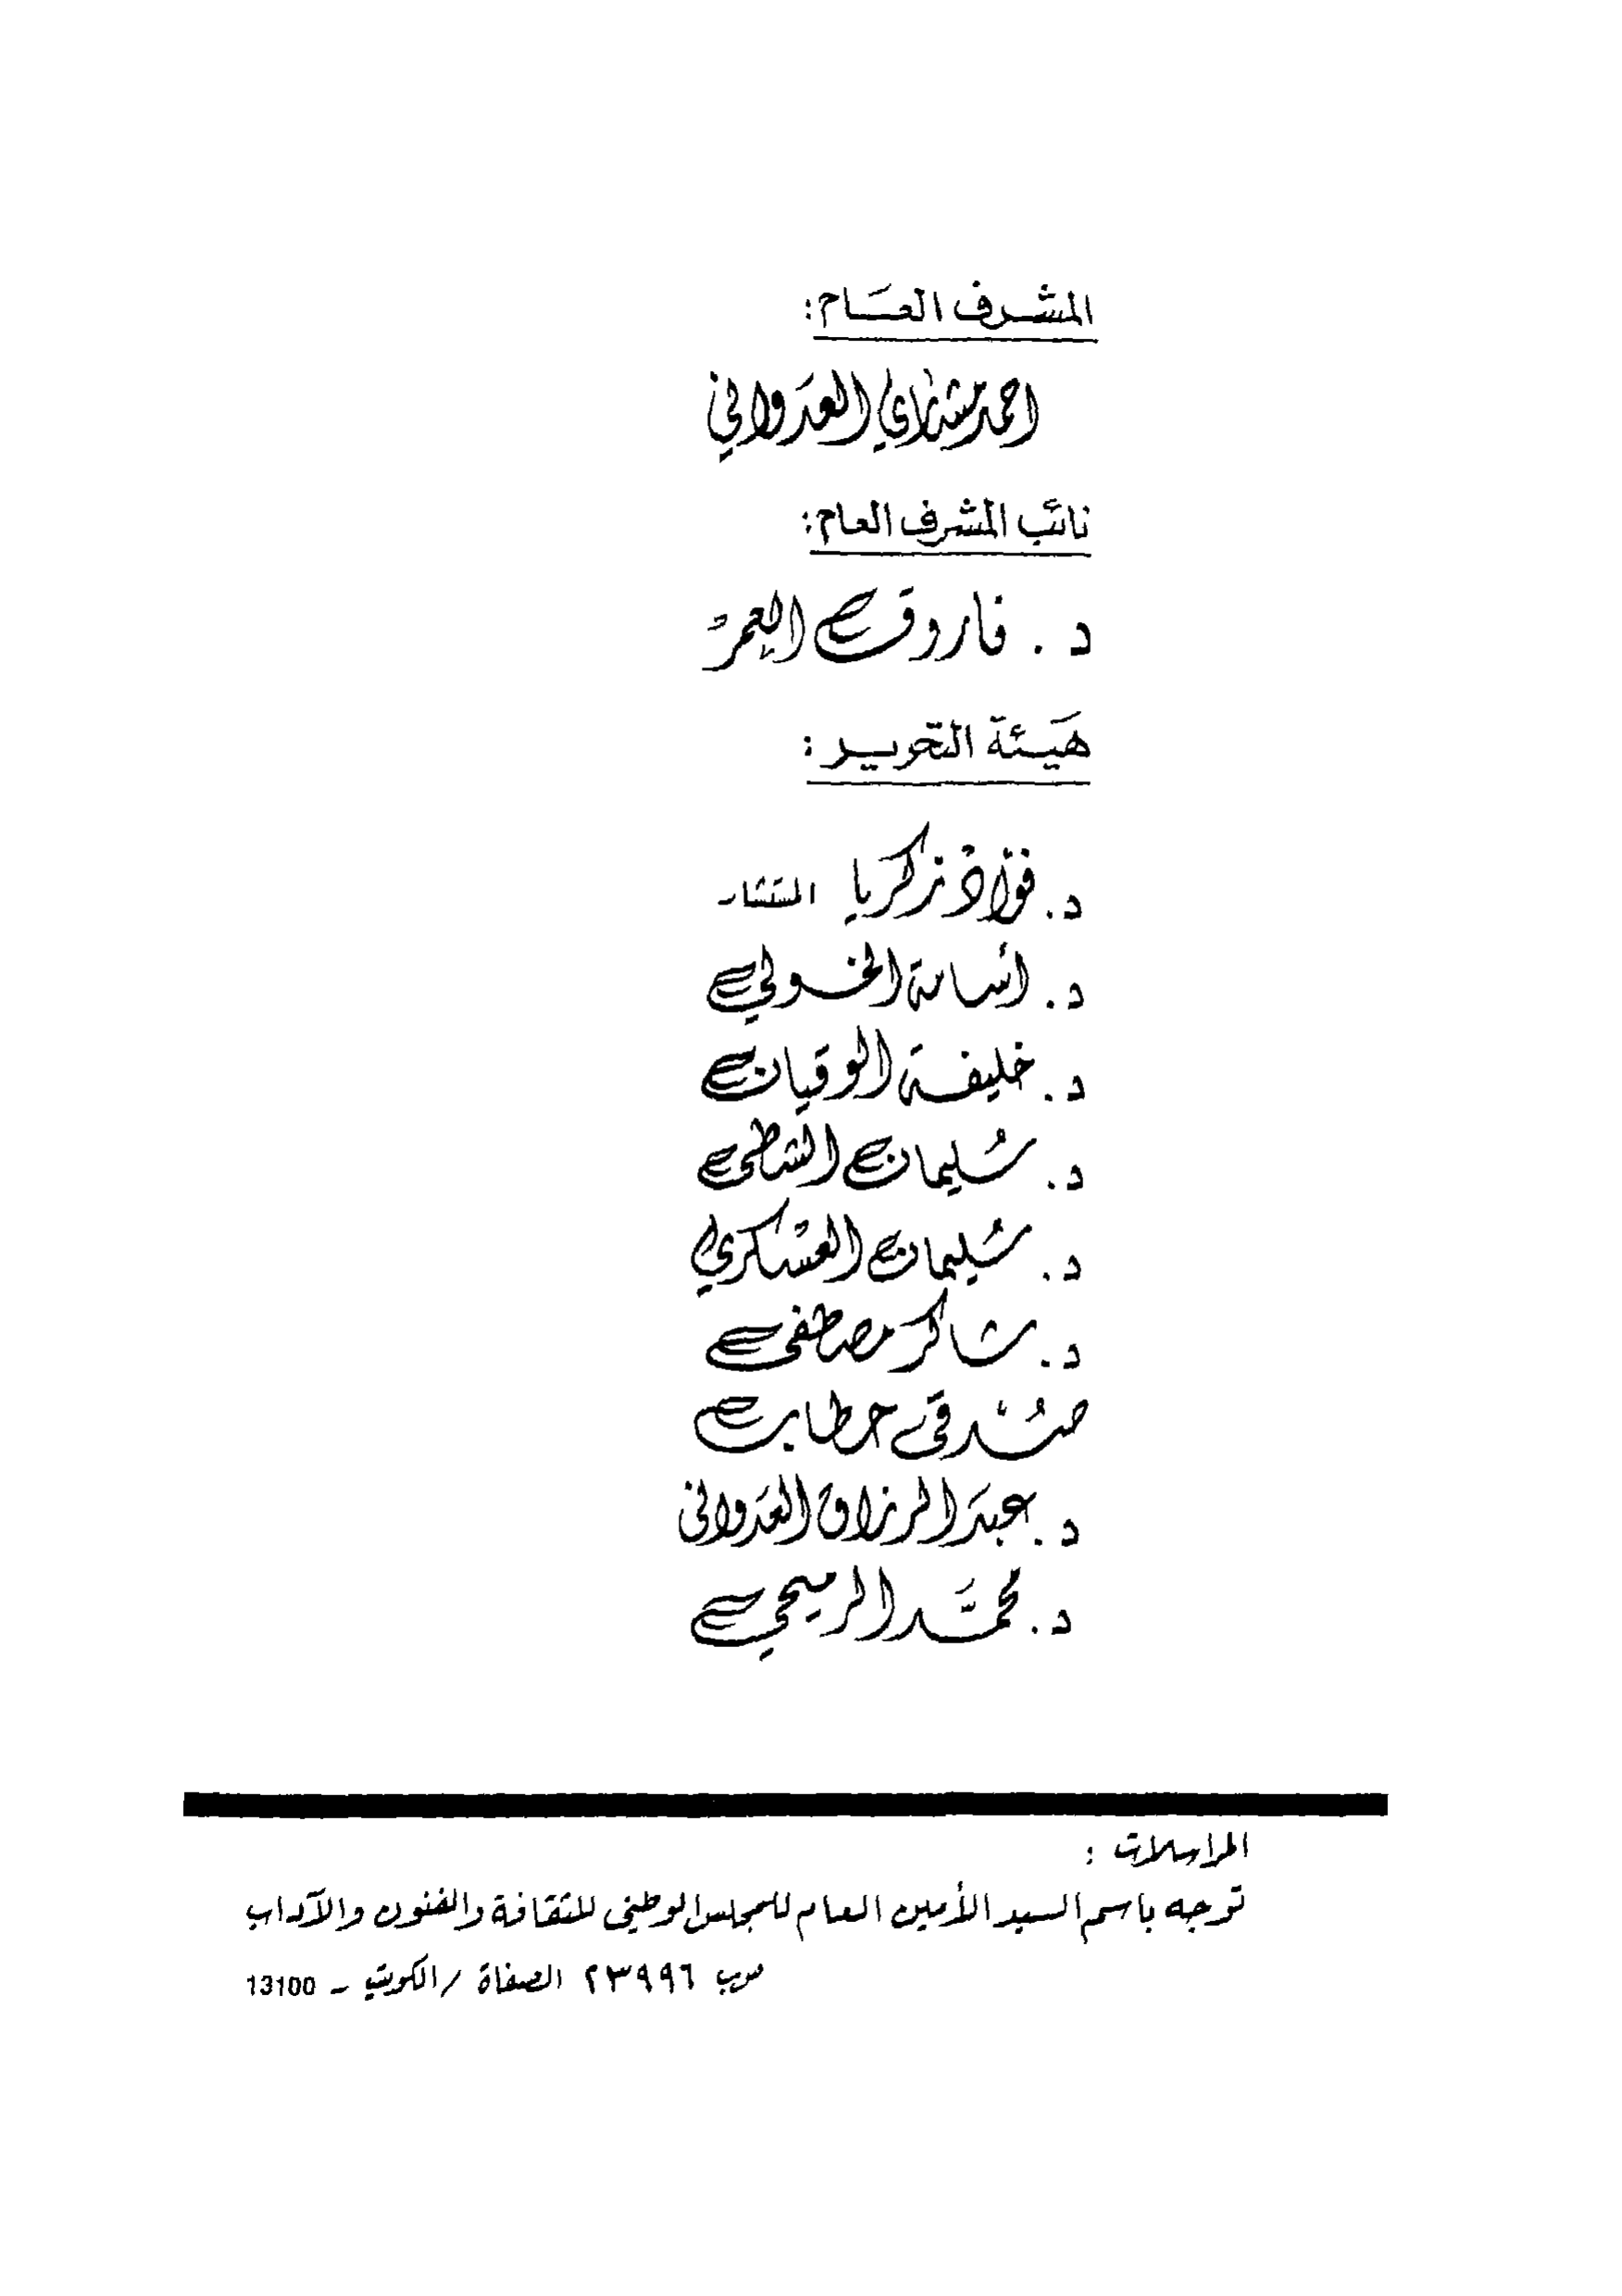 المشرف العام:
احمد مشاري العدواني
نائب المشرف العام:
د. فاروق العمر
هيئة التحرير:
د. فؤاد زكريا المستشار
د. أسامة الخولي
د. خليفة الوقيان
د. سليمان الشطي
د. سليمان العسكري
د. شاكر مصطفى
صدقي حطاب
د. عبد الرزاق العدواني
د. محمد الرميحي
المراسلات:
توجه باسم السيد الأمين العام للمجلس الوطني للثقافة والفنون والآداب
ص.ب ٢٣٩٩٦ الصفاة / الكويت - 13100